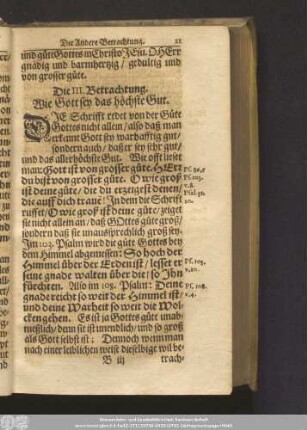 Der Andere Betrachtung. 21
und güte Gottes in Christo JEsu. O HErr
gnädig und barmhertzig / gedultig und
von grosser güte.
Die III. Betrachtung.
Wie Gott sey das höchste Gut.
DIE Schrifft redet von der Güte
Gottes nicht allein / also daß man
erkenne Gott sey warhafftig gut /
sondern auch / daß er sey sehr gut /
und das allerhöchste Gut. Wie offt lieset
man: Gott ist von grosser güte. HErr
du bist von grosser güte. O wie groß
ist deine güte / die du erzeigest denen /
die auff dich trauen! In dem die Schrifft
ruffet / O wie groß ist deine güte / zeiget
sie nicht allein an / daß GOttes güte groß /
sondern daß sie unaussprechlich groß sey.
Im 103. Psalm wird die güte Gottes bey
dem Himmel abgemessen: So hoch der
Himmel über der Erden ist / lesset er
seine gnade walten über die / so Ihn
fürchten. Also im 108. Psalm: Deine
gnade reicht so weit der Himmel ist /
und deine Warheit so weit die Wol-
cken gehen. Es ist ja Gottes güte unab-
meßlich / denn sie ist unendlich / und so groß
als Gott selbst ist; Dennoch wenn man
nach einer leiblichen weise dieselbige wil be-
B iij trach-
Ps. 103.
v. 8.
Ps. 103.
v. 11.
Ps. 108.
v. 4.